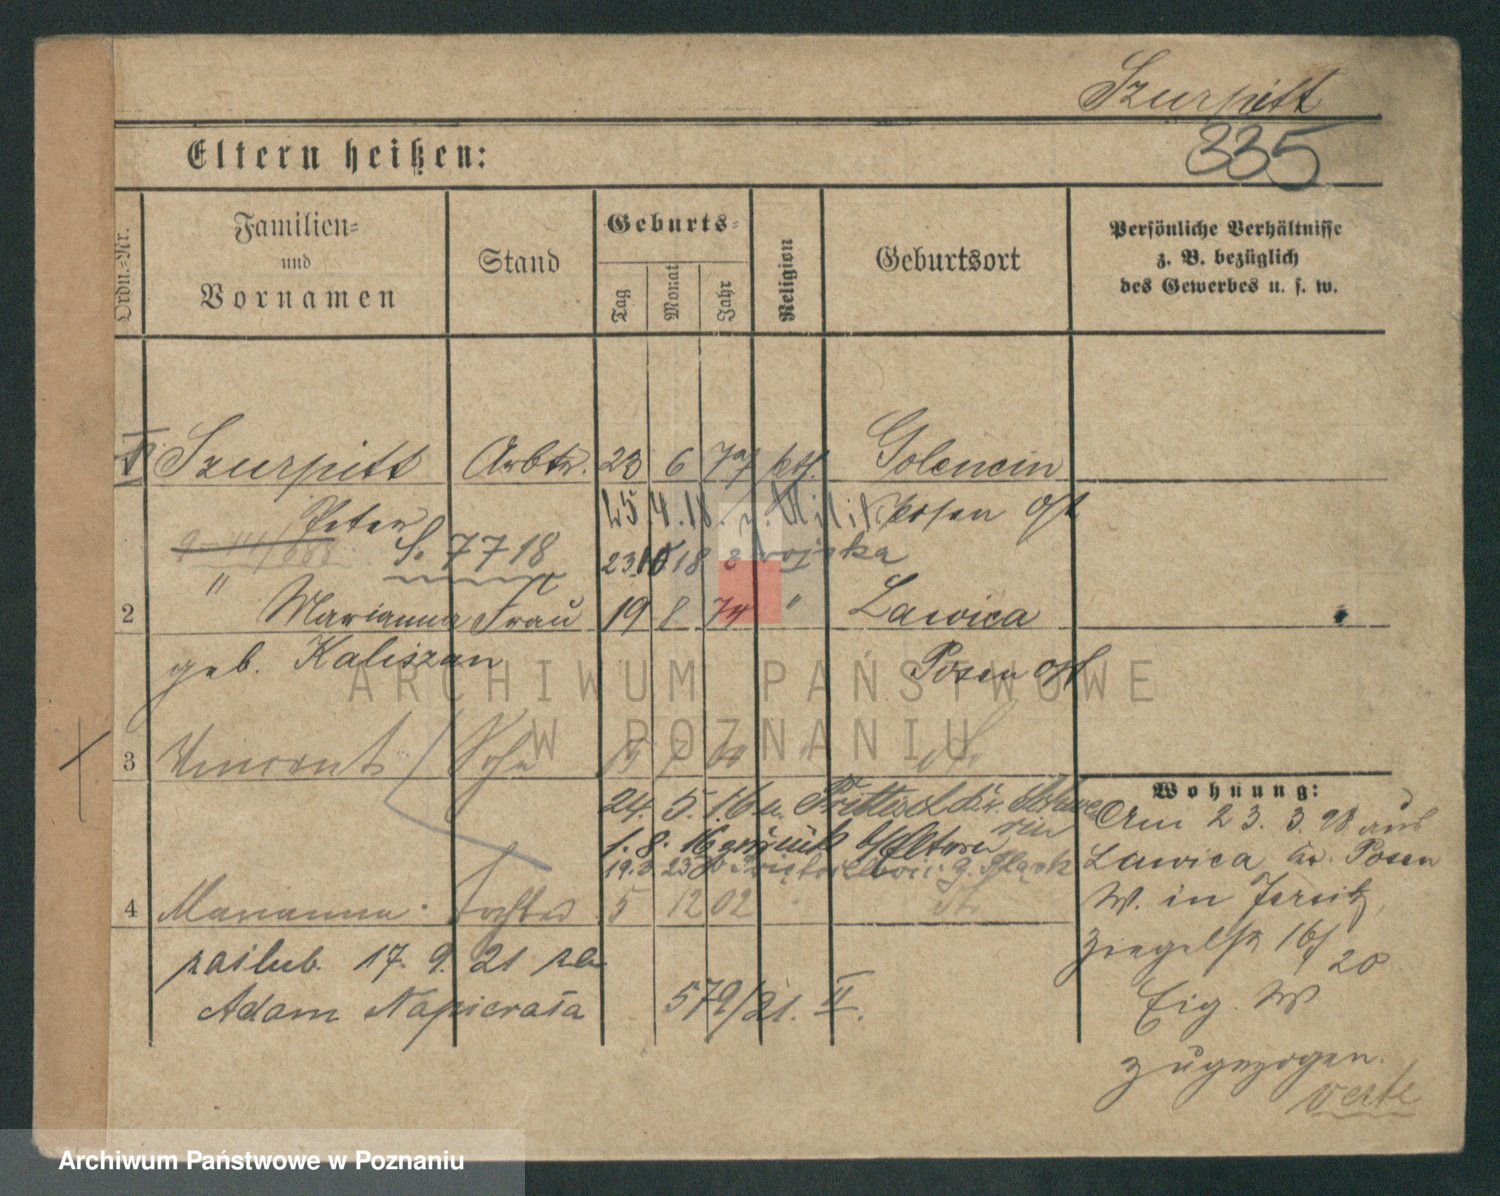 Szurpitt
335
Eltern heißen:
Ordn.-Nr.
Familien-
und
Vornamen
Stand
Geburts-
Tag
Monat
Jahr
Religion
Geburtsort
Persönliche Verhältnisse
z. B. bezüglich
des Gewerbes u. s. w.
1 Szurpitt Arbtr. 23 6 77 kth. Golencin
Peter 25.4.18. Posen Ost
S. 7718 23 10 18 z wojska
"
2 Marianna Frau 19 8 74 " Lawica
geb. Kaliszan Posen Ost
3 Vincent Sohn 19
24. 5. 16
1. 8. 16 zurück b/Eltern
4 Marianna Tochter 5 12 02
zaślub. 17. 9. 21 za
Adam Napierała 579/21. II.
Wohnung:
Am 23. 3. 98 aus
Lawica Kr. Posen
W. in Jersitz,
Ziegelstr 16/
20
Eig. W
zugezogen.
verte
ARCHIWUM PAŃSTWOWE
W POZNANIU
Archiwum Państwowe w Poznaniu